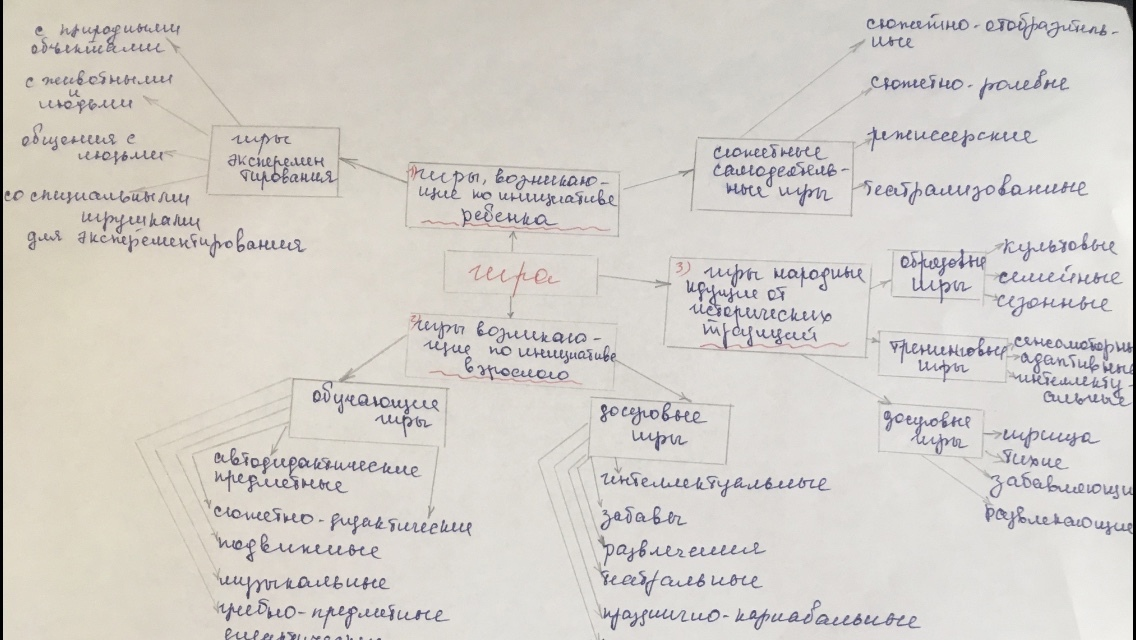 с природными
объектами
с животными
и
людьми
общения с
людьми
со специальными
игрушками
для эксперементирования
игры
эксперемен
тирования
1) игры, возникаю-
щие по инициативе
ребенка
сюжетные
самодеятель-
ные игры
сюжетно-отобразитель-
ные
сюжетно-ролевые
режиссерские
театрализованные
игра
3) игры народные
идущие от
исторических
традиций
обрядовые
игры
культовые
семейные
сезонные
тренинговые
игры
сенсомоторны
адаптивные
интеллекту-
альные
досуговые
игры
игрища
тихие
забавляющи
развлекающие
2) игры возникаю-
щие по инициативе
взрослого
обучающие
игры
автодидактические
предметные
сюжетно-дидактические
подвижные
музыкальные
учебно-предметные
досуговые
игры
интеллектуальные
забавы
развлечения
театральные
празднично-карнавальные